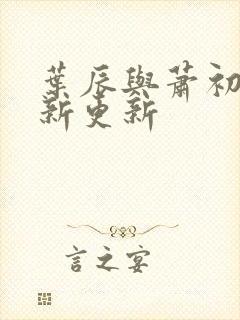 葉辰與蕭初
新更新
言之宴